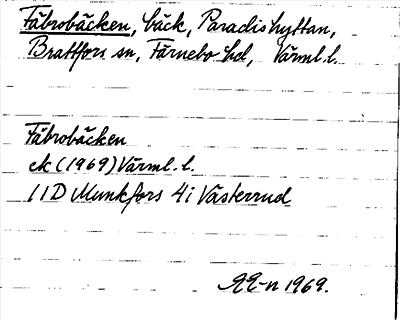 Fäbrobäcken, bäck, Paradishyttan,
Brattfors sn, Färnebo hd, Värml. l.
Fäbrobäcken
ek (1969) Värml. l.
11D Munkfors 4i Västerrud
1969.